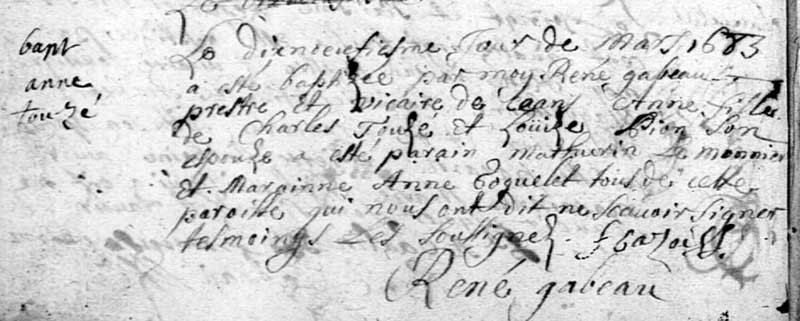 bapt
anne
touzé
Le dixneufiesme Jour de Mars 1683
a esté baptizee par moy René gabeau
prestre et vicaire de ceans Anne fille
de Charles Touzé et Loüize Pion son
espouze a esté parain Mathurin Lemonnier
et Marainne Anne Coquelet tous de cette
paroisse qui nous ont dit ne scavoir signer
tesmoings les soussignez
René gabeau